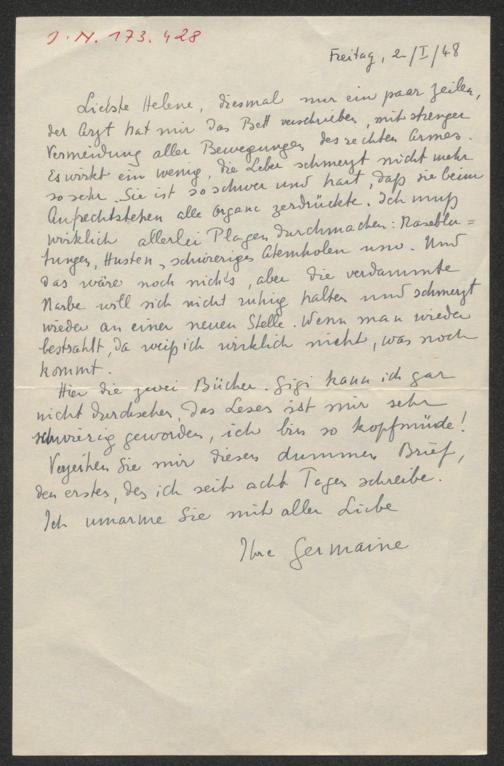 I. N. 173.428
Freitag, 2/I/48
Liebste Helene, diesmal nur ein paar Zeilen,
der Arzt hat mir das Bett verschrieben, mit strenger
Vermeidung aller Bewegungen des rechten Armes.
Es wirkt ein wenig, die Leber schmerzt nicht mehr
so sehr. Sie ist so schwer und hart, daß sie beim
Aufrechtstehen alle Organe zerdrückte. Ich muß
wirklich allerlei Plagen durchmachen: Nasenblu=
tungen, Husten, schwieriges Atemholen usw. Und
das wäre noch nichts, aber die verdammte
Narbe will sich nicht ruhig halten und schmerzt
wieder an einer neuen Stelle. Wenn man wieder
bestrahlt, da weiß ich wirklich nicht, was noch
kommt.
Hier die zwei Bücher. Gigi kann ich gar
nicht durchsehen, das Lesen ist mir sehr
schwierig geworden, ich bin so kopfmüde!
Verzeihen Sie mir diesen dummen Brief,
den ersten, den ich seit acht Tagen schreibe.
Ich umarme Sie mit aller Liebe
Ihre Germaine